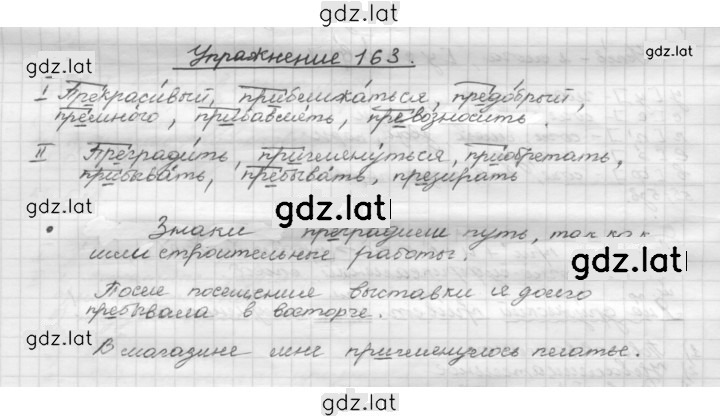 gdz.lat
Упражнение 163.
gdz.lat
gdz.lat
I Прекрасивый, приближаться, предобрый,
премного, прибавлять, превозносить.
II Преградить, приглянуться, приобретать,
прибывать, пребывать, презирать
gdz.lat
gdz.lat
Знаки преградили путь, так как
шли строительные работы.
gdz.lat
После посещения выставки я долго
пребывала в восторге.
gdz.lat
В магазине мне приглянулось платье.
gdz.lat
gdz.lat